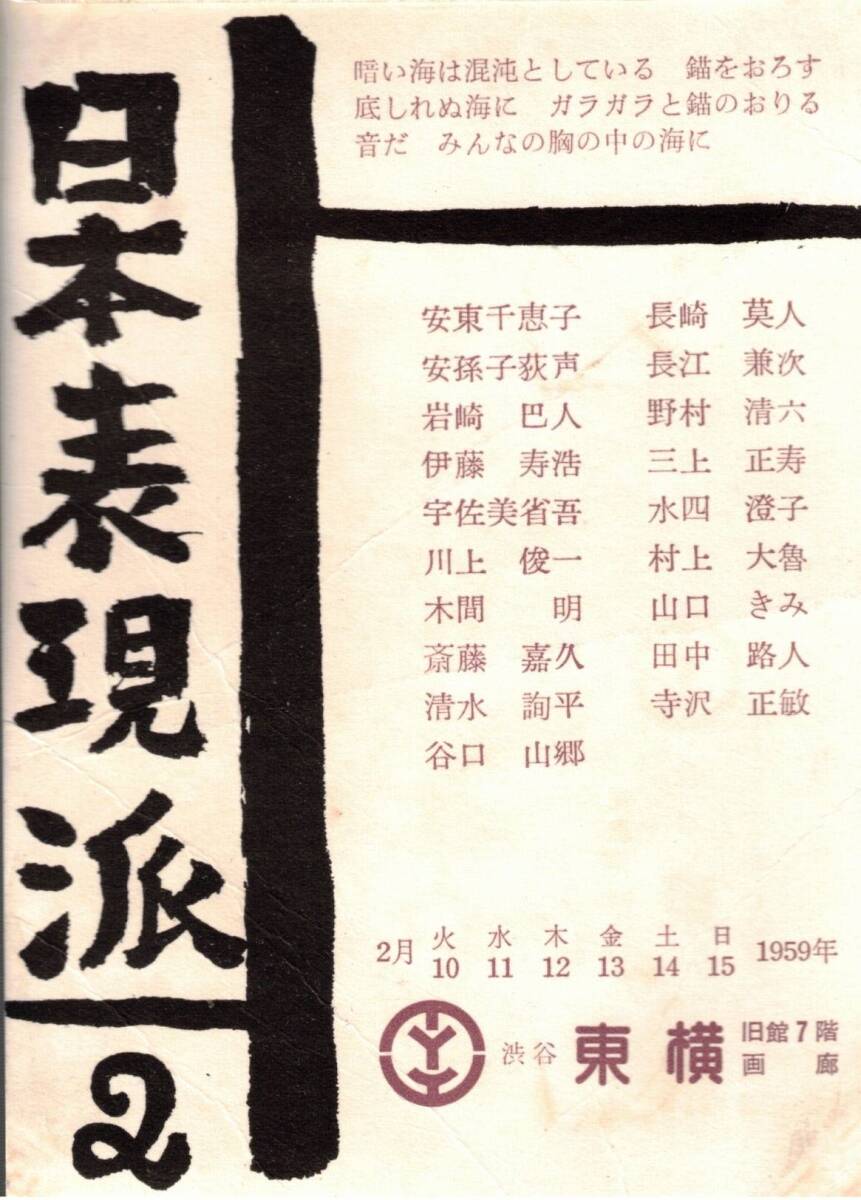 日本表現派
2
暗い海は混沌としている　錨をおろす
底しれぬ海に　ガラガラと錨のおりる
音だ　みんなの胸の中の海に
安東千恵子
安孫子荻声
岩崎　巴人
伊藤　寿浩
宇佐美省吾
川上　俊一
木間　明
斎藤　嘉久
清水　詢平
谷口　山郷
長崎　莫人
長江　兼次
野村　清六
三上　正寿
水四　澄子
村上　大魯
山口　きみ
田中　路人
寺沢　正敏
火　水　木　金　土　日
2月　10　11　12　13　14　15　1959年
渋谷　東横　旧館7階
画廊